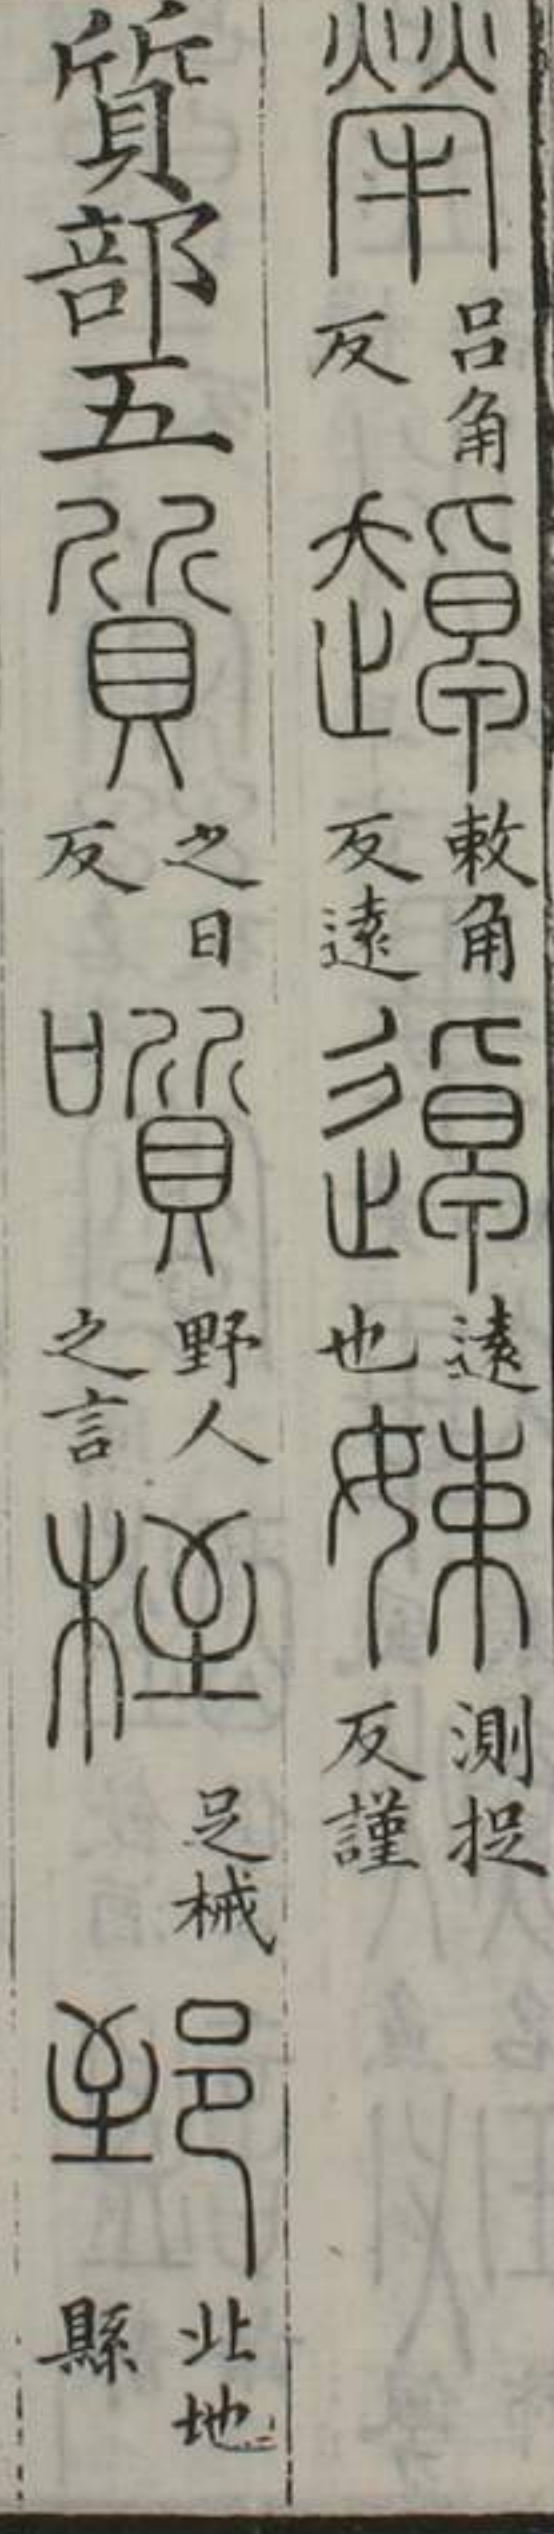 犖呂角反趠敕角反遠逴遠也娕測捉反謹
質部五質之日反㘉野人之言桎足械郅北地縣